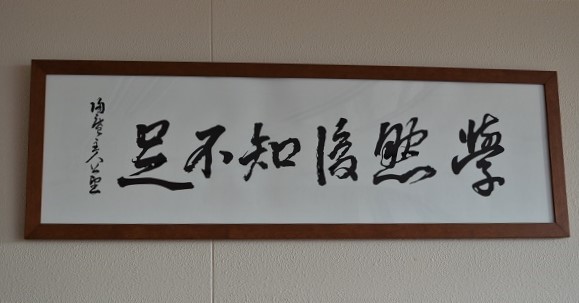 學然後知不足